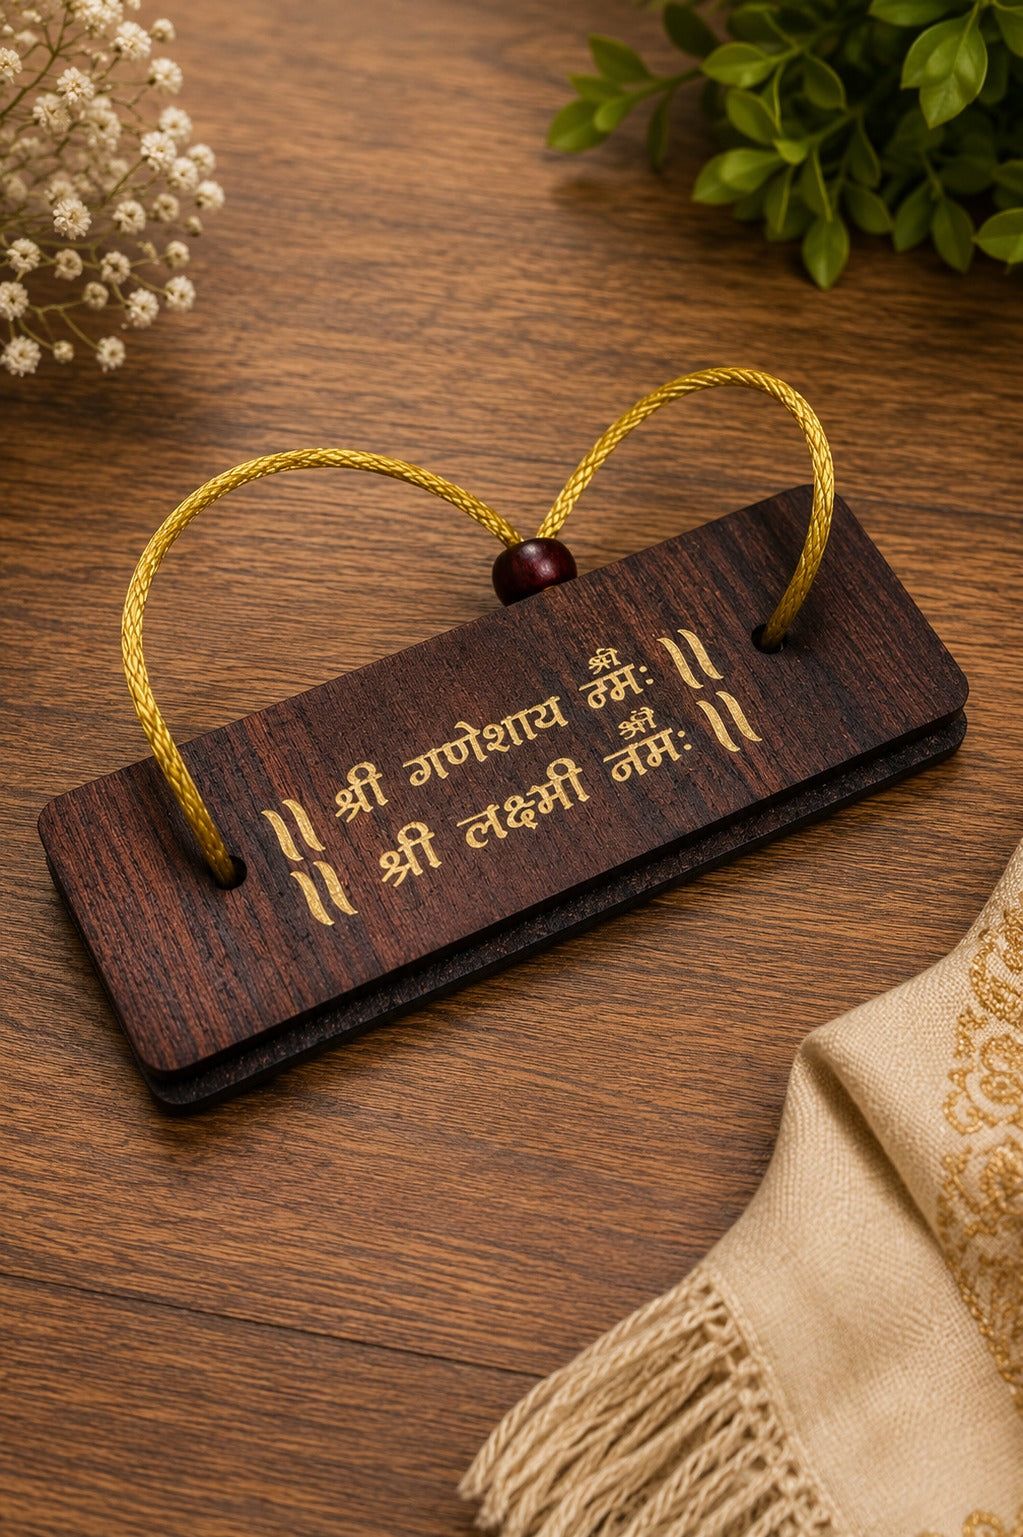 ॥ श्री गणेशाय नमः ॥
॥ श्री लक्ष्मी नमः ॥